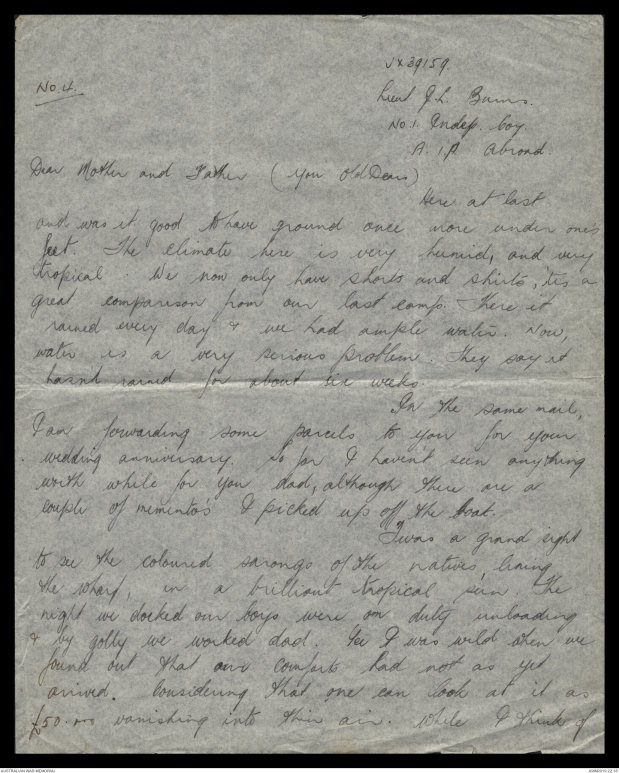 No. 4.
VX39159.
Lieut J.L. Burns.
No. 1. Indep. Coy.
A.I.F. Abroad
Dear Mother and Father (You Old Dears)
Here at last
and was it good to have ground once more under one's
feet. The climate here is very humid, and very
tropical We now only have shorts and shirts, tis a
great comparison from our last camp. There it
rained every day & we had ample water. Now,
water is a very serious problem. They say it
hasnt rained for about six weeks.
In the same mail,
I am forwarding some parcels to you for your
wedding anniversary. So far I havent seen anything
worth while for you dad, although there are a
couple of memento's I picked up off the boat.
Twas a grand sight
to see the coloured sarongs of the natives, lining
the wharf, in a brilliant tropical sun. The
night we docked our boys were on duty unloading
& by golly we worked dad. Gee I was wild when we
found out that our comforts had not as yet
arrived. Considering that one can look at it as
£50. vanishing into thin air. While I think of
AUSTRALIAN WAR MEMORIAL